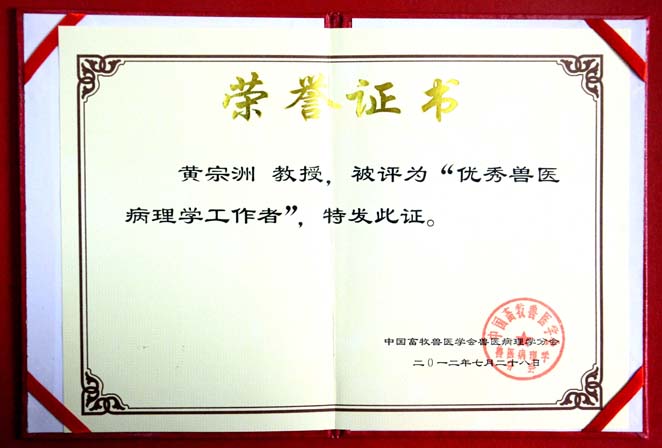 荣誉证书
黄宗洲 教授，被评为“优秀兽医
病理学工作者”，特发此证。
中国畜牧兽医学会兽医病理学分会
二〇一二年七月二十八日
中国畜牧兽医学会
兽医病理学
分会